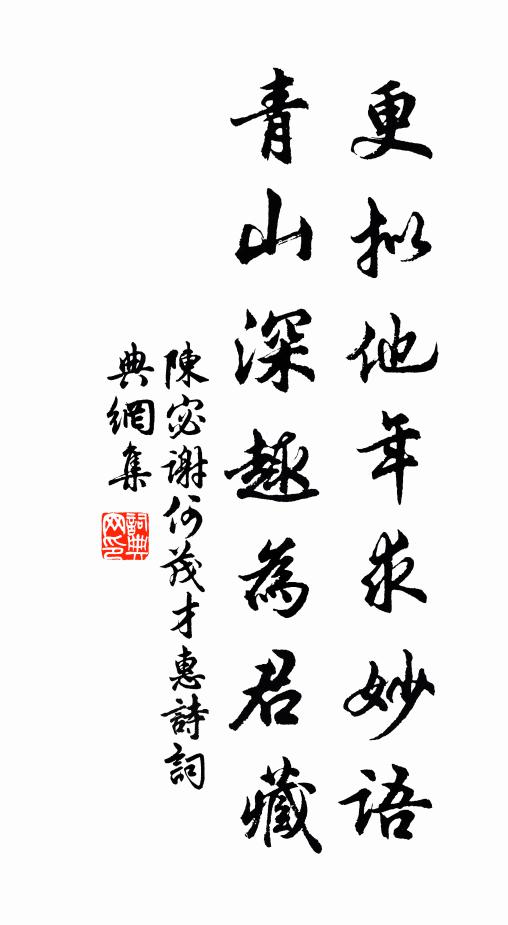 更拟他年求妙語
青山深趣為君藏
陳宓谢何茂才惠詩詞
典網集
詞典
网印